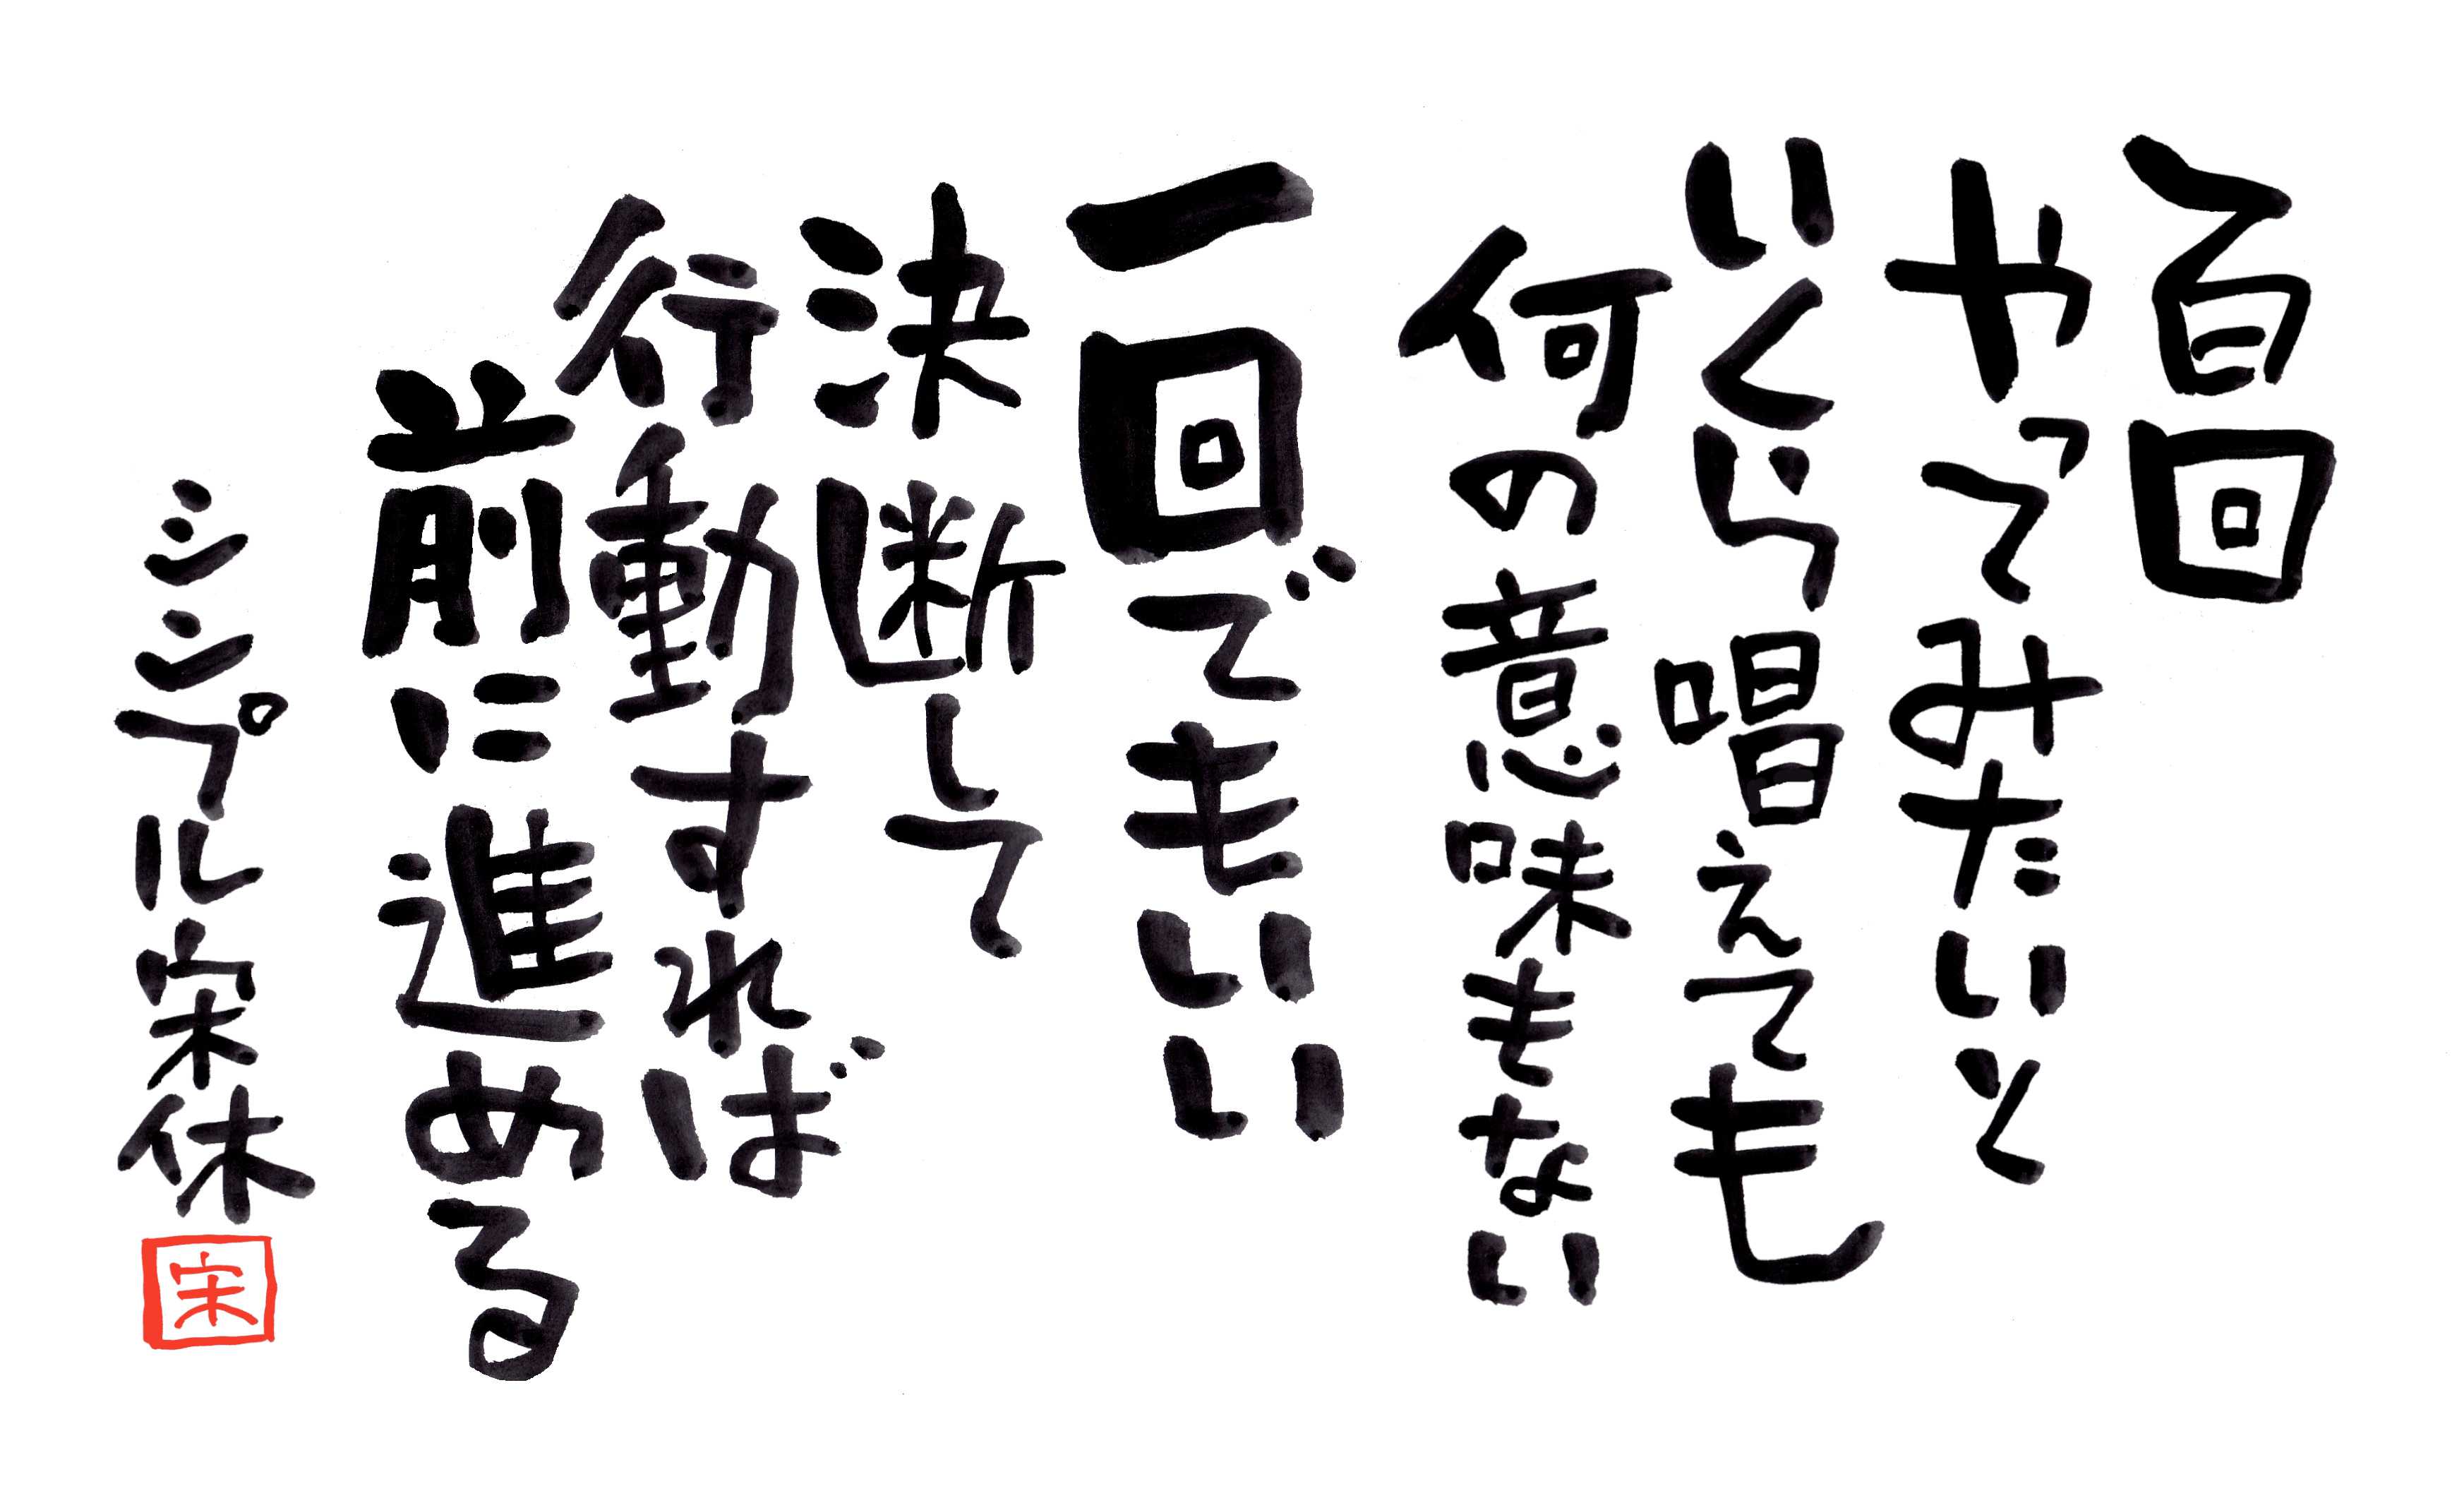 百回
やってみたいと
いくら唱えても
何の意味もない
一回でもいい
決断して
行動すれば
前に進める
シンプル宋休
宋